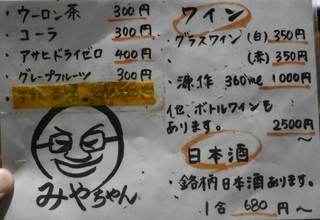 ・ウーロン茶 300円
・コーラ 300円
・アサヒドライゼロ 400円
・グレープフルーツ 300円
みやちゃん
ワイン
・グラスワイン (白) 350円
(赤) 350円
360ml 1000円
他、ボトルワインも
あります。 2500円〜
日本酒
・銘柄日本酒あります。
1合 680円〜